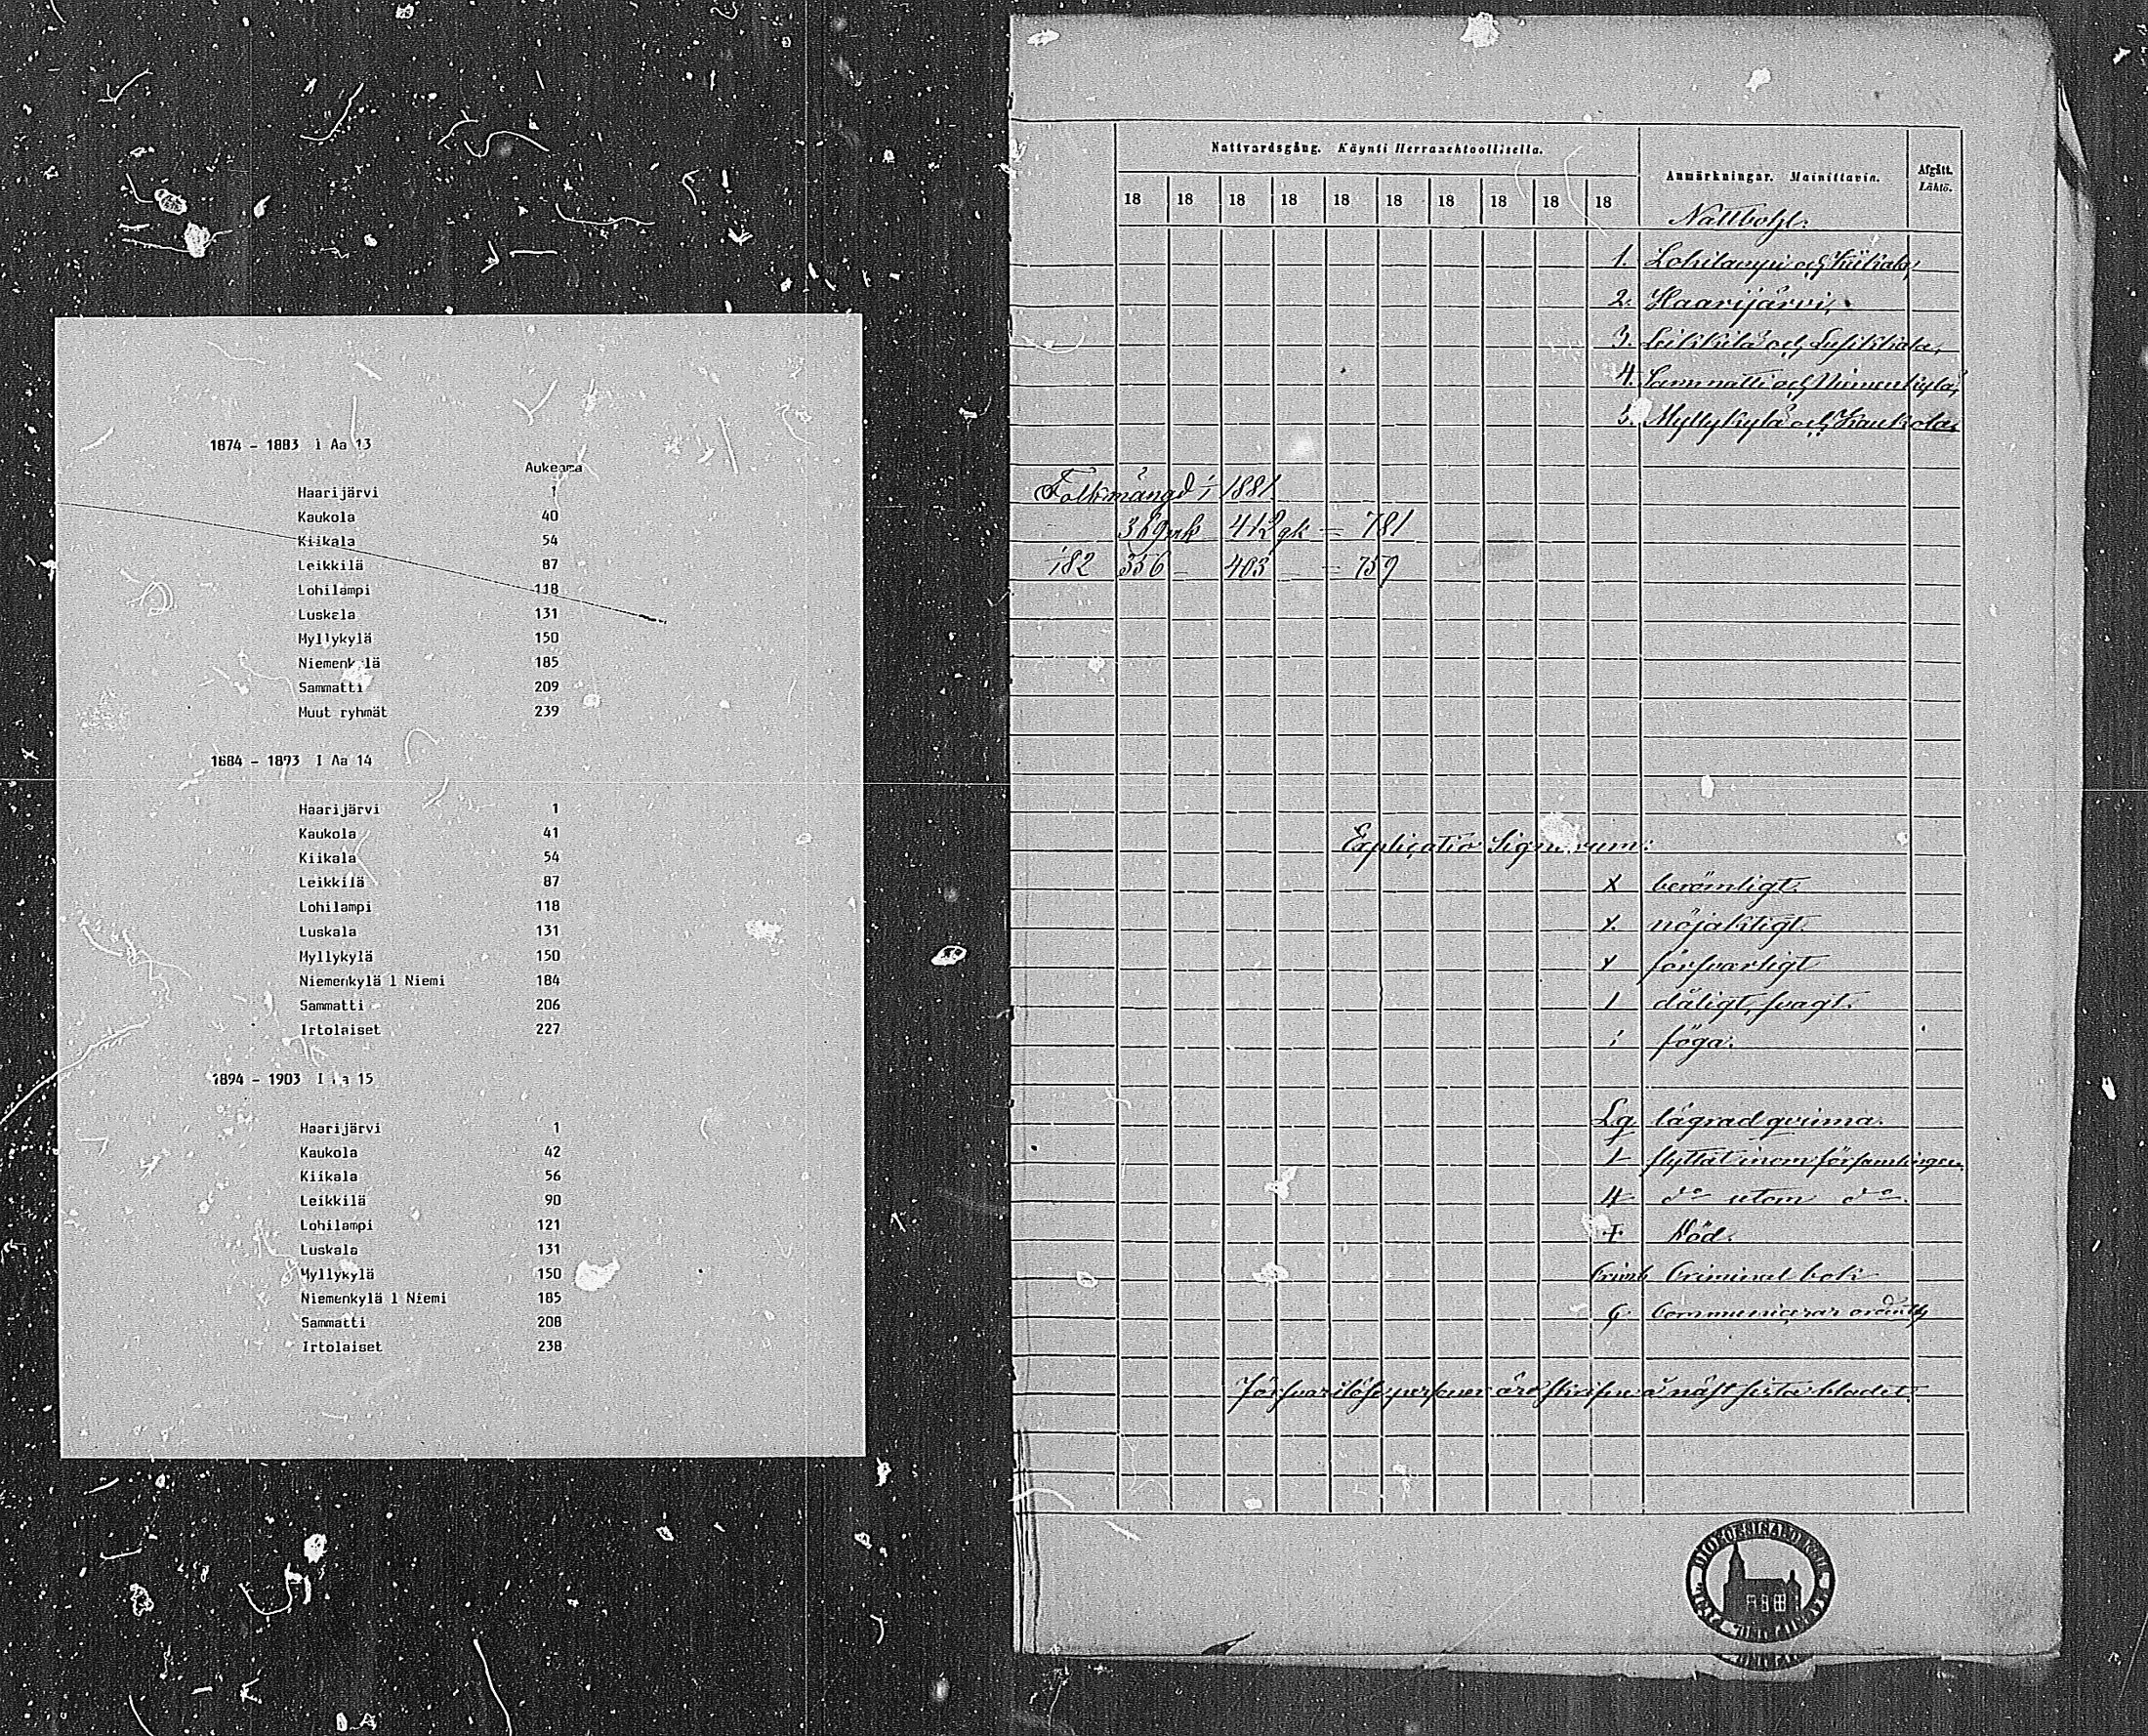 1874 - 1883 I Aa 13
Aukeama
Haarijärvi 1
Kaukola 40
Kiikala 54
Leikkilä 87
Lohilampi 118
Luskala 131
Myllykylä 150
Niemenkylä 185
Sammatti 209
Muut ryhmät 239
1884 - 1893 I Aa 14
Haarijärvi 1
Kaukola 41
Kiikala 54
Leikkilä 87
Lohilampi 118
Luskala 131
Myllykylä 150
Niemenkylä l Niemi 184
Sammatti 206
Irtolaiset 227
1894 - 1903 I Aa 15
Haarijärvi 1
Kaukola 42
Kiikala 56
Leikkilä 90
Lohilampi 121
Luskala 131
Myllykylä 150
Niemenkylä l Niemi 185
Sammatti 208
Irtolaiset 238
Nattvardsgång. Käynti Herraanehtoollisella.
Anmärkningar. Mainittavia.
Afgått. Lähtö.
18 18 18 18 18 18 18 18 18 18
1. Lohilampi och Kiikala,
2. Haarijärvi,
3. Leikkilä och Luskala,
4. Sammatti och Niemenkylä,
5. Myllykylä och Kaukola.
Folkmängd i 1881
369 mk 412 qk = 781
182 356 - 403 = 759
Explicatio Signorum:
x berömligt.
x. nöjaktigt.
y försvarligt
1 dåligt, svagt.
i föga.
Lg lägrad qvinna.
flyttat inom församlingen.
do utom do.
+ död.
Crimb Criminal bok
C. Communicerar
Försvarslöse personer äro skrifne å näst sista bladet.